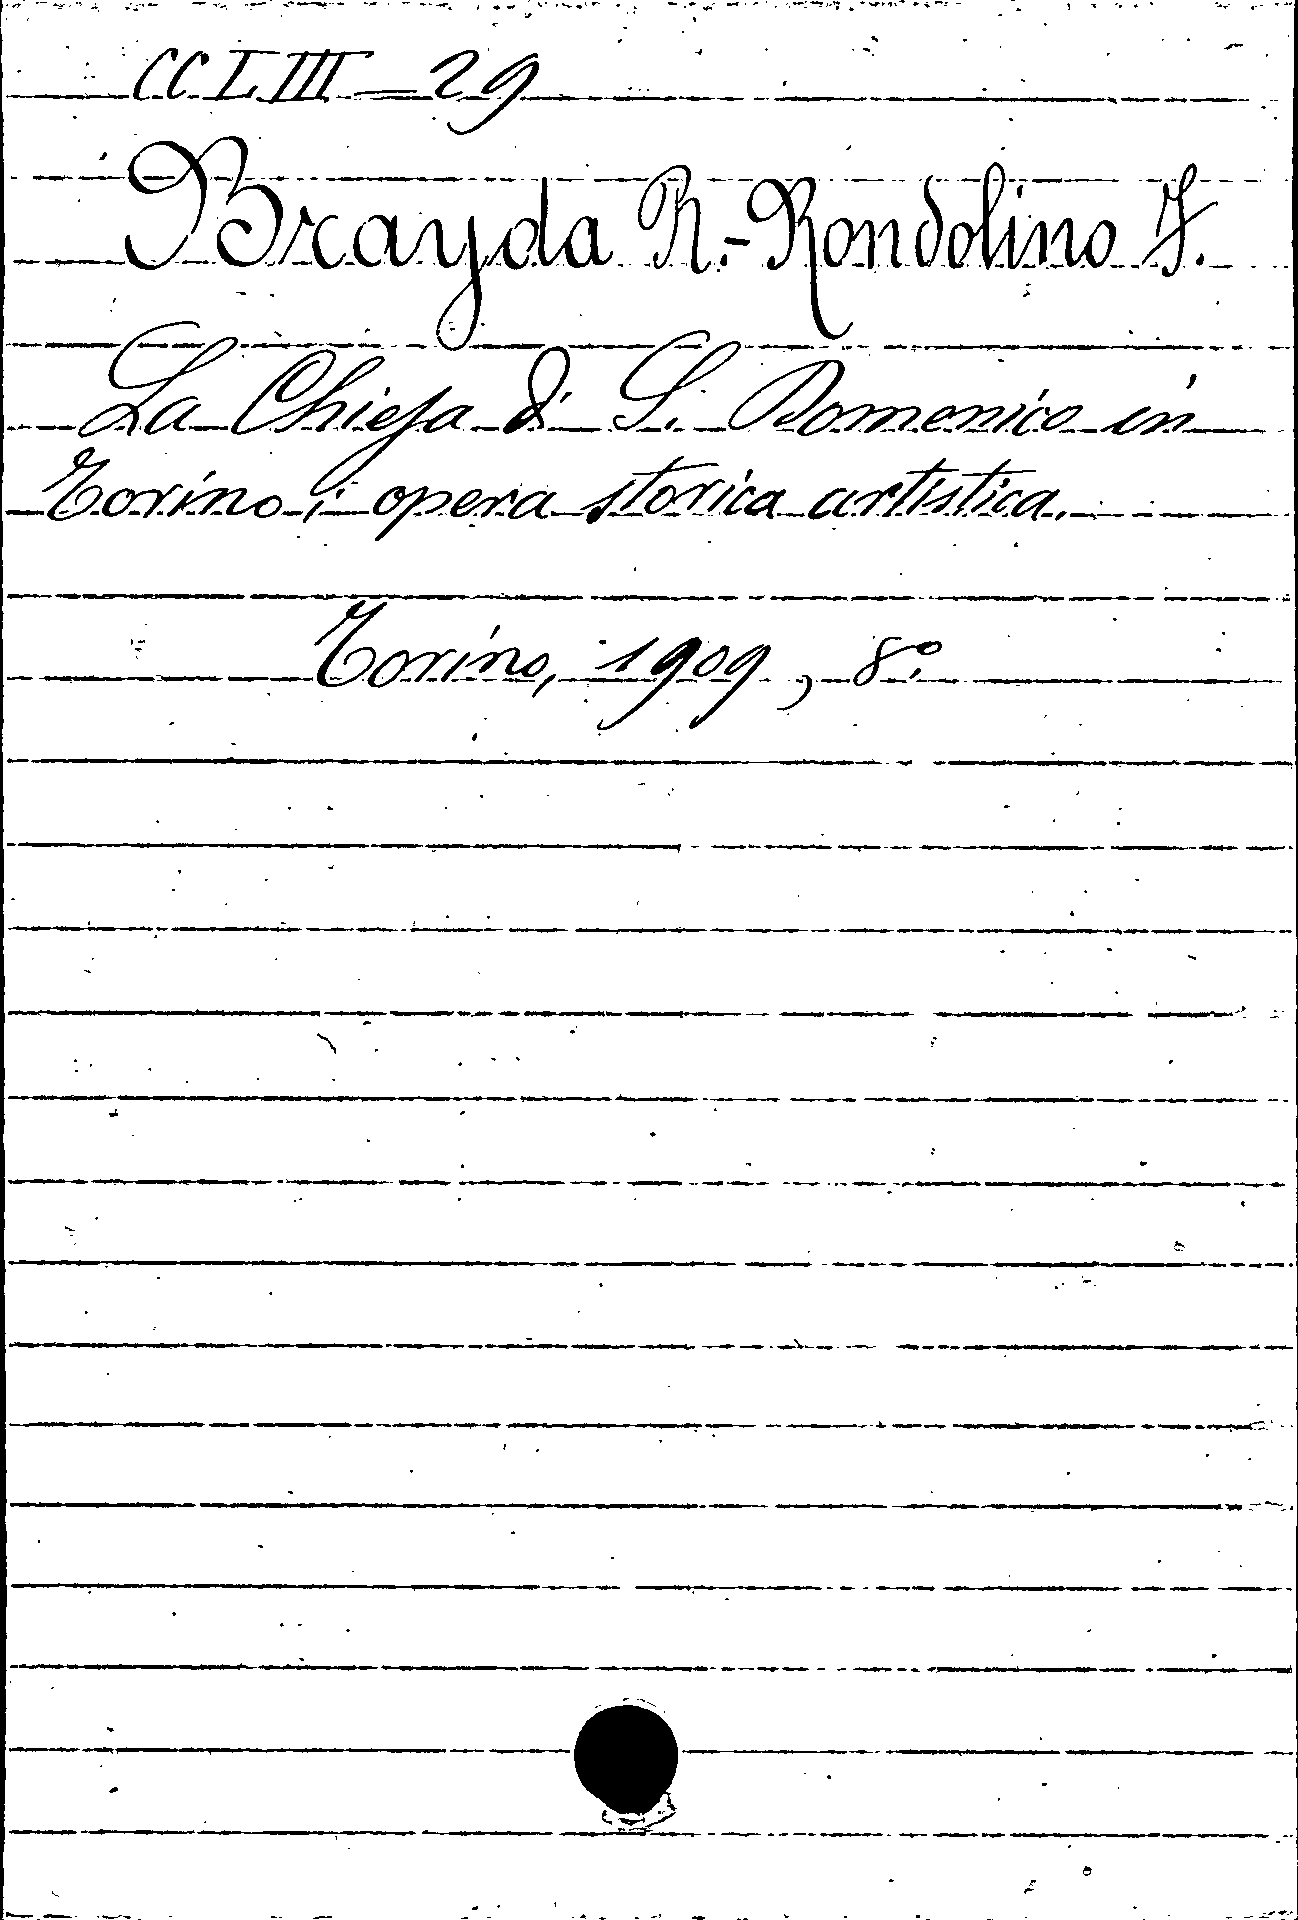 CCLIII - 29
Brayda R.- Rondolino F.
La Chiesa di S. Domenico in
Torino; opera storica artistica.
Torino, 1909, 8º.